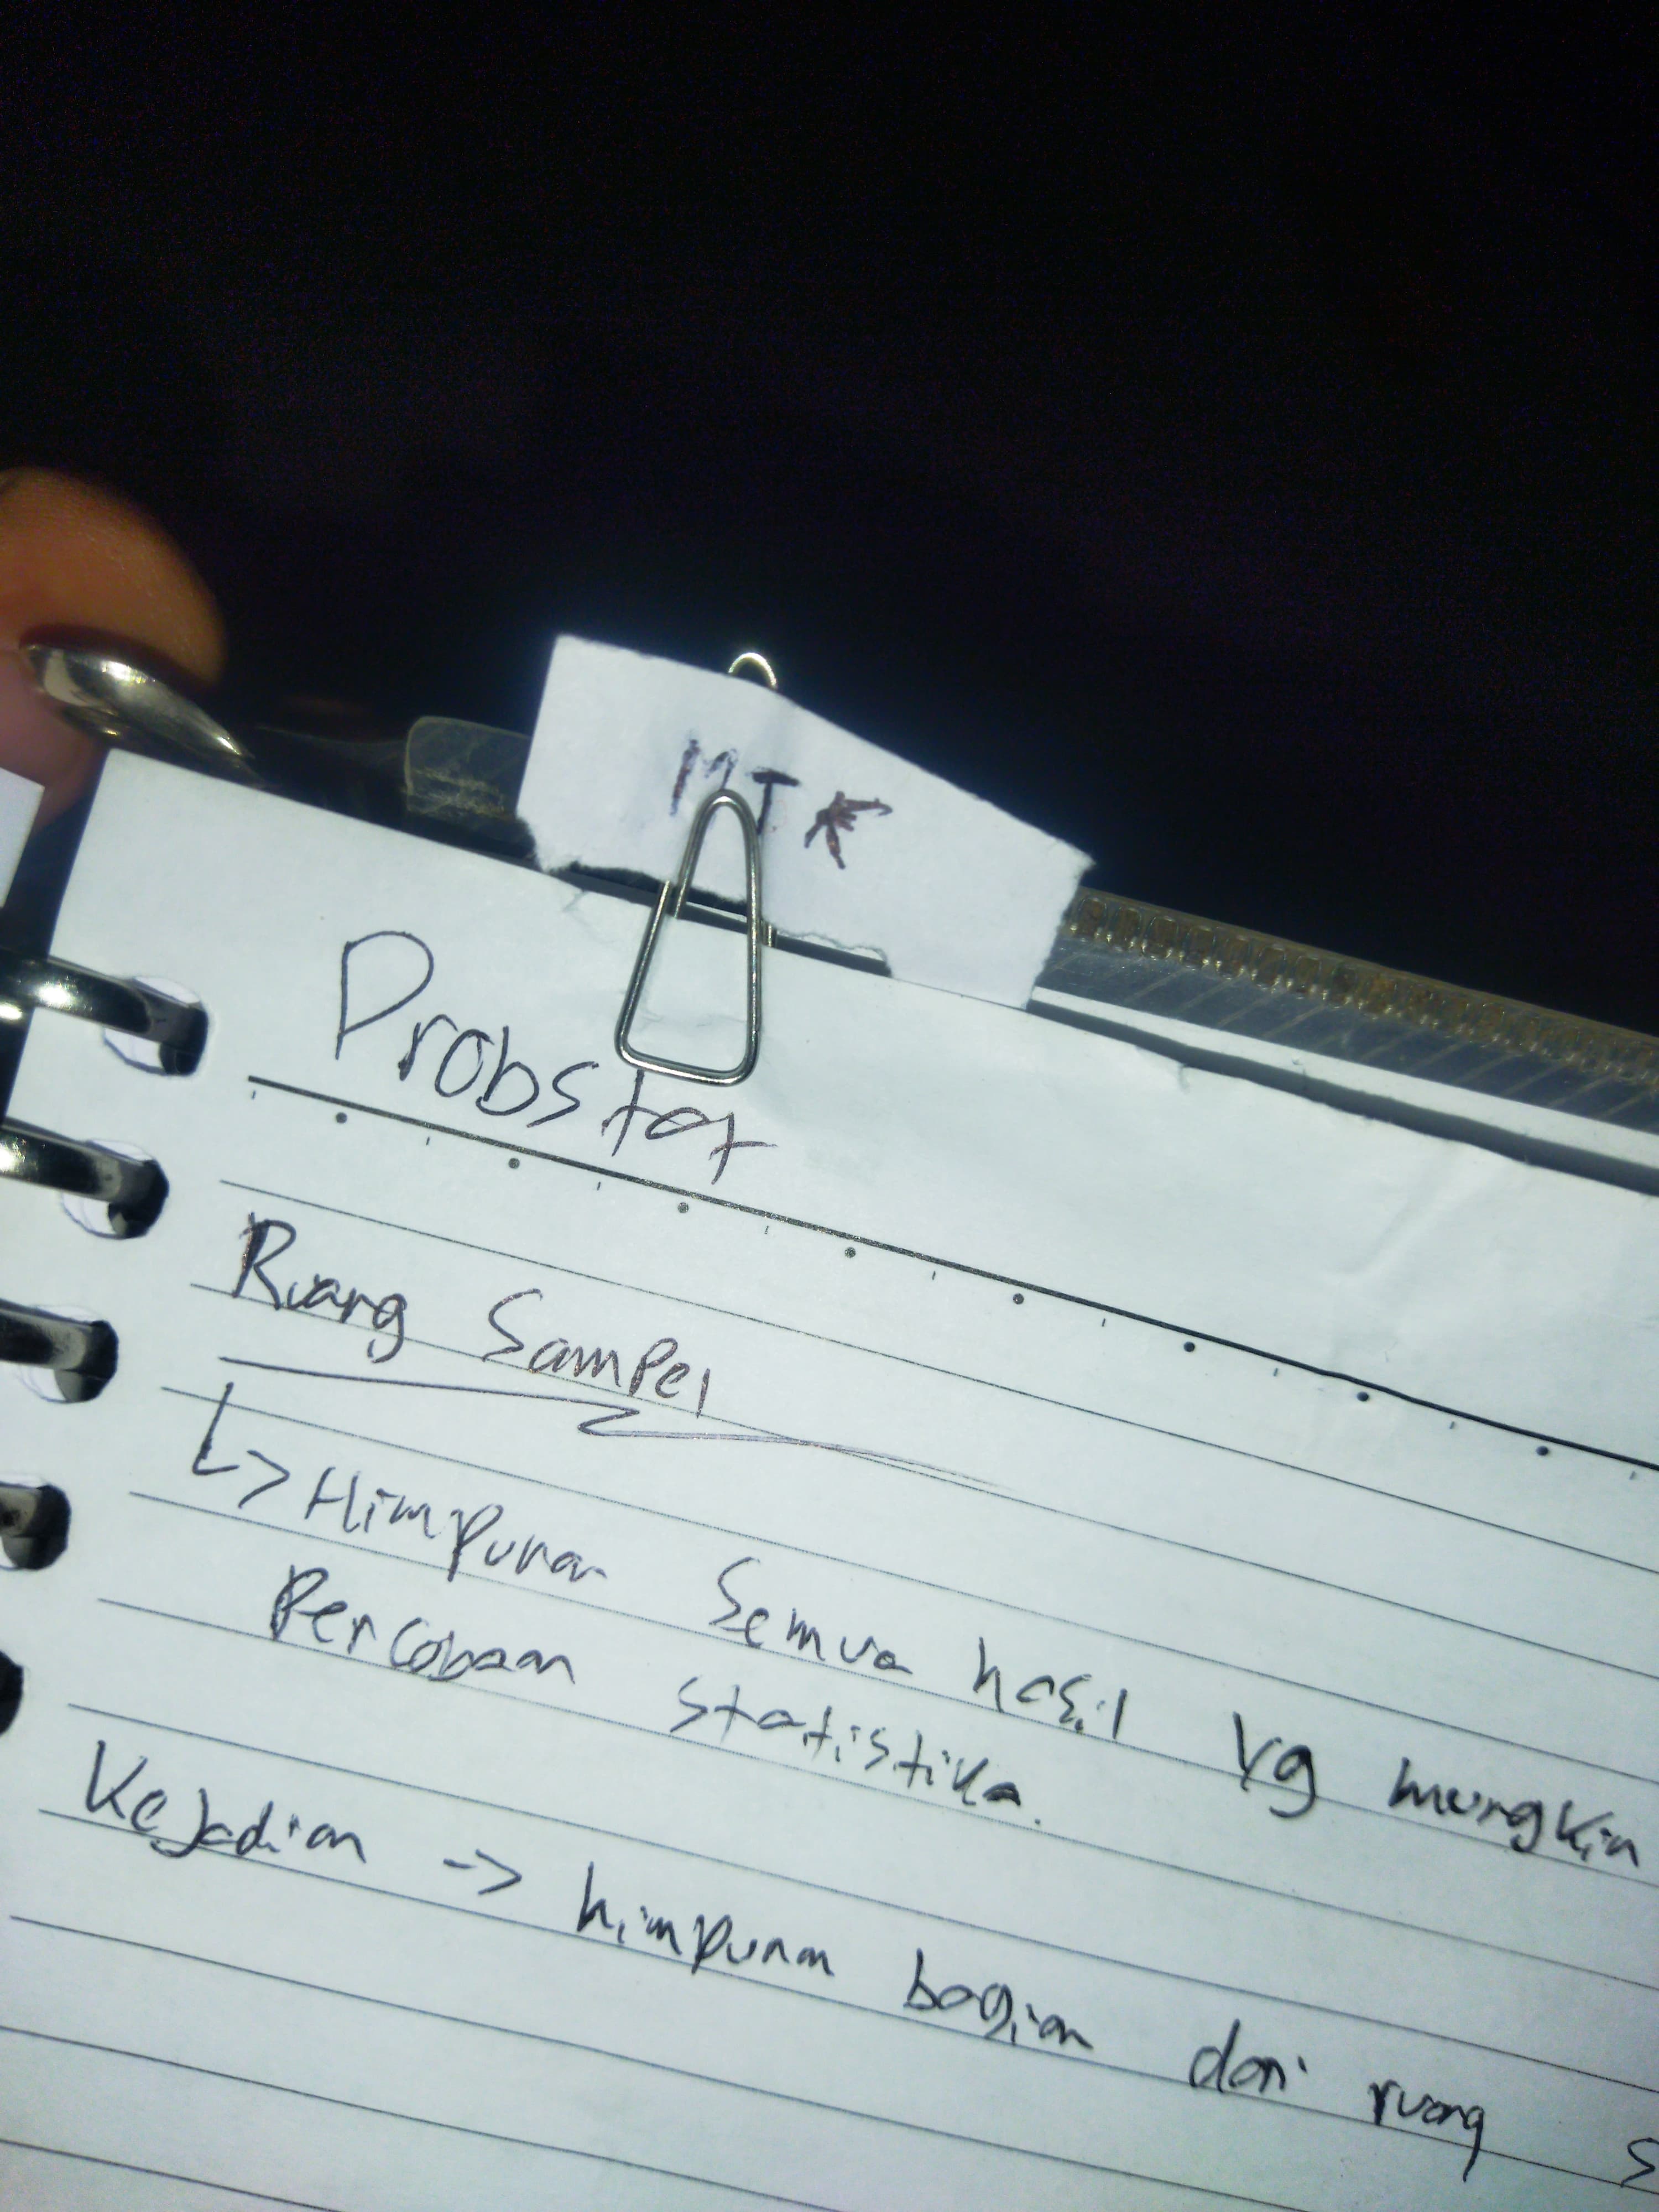 MTK
Probstat
Ruang Sampel
↳ Himpunan Semua hasil yg mungkin
Percobaan statistika.
Kejadian -> himpunan bagian dari ruang